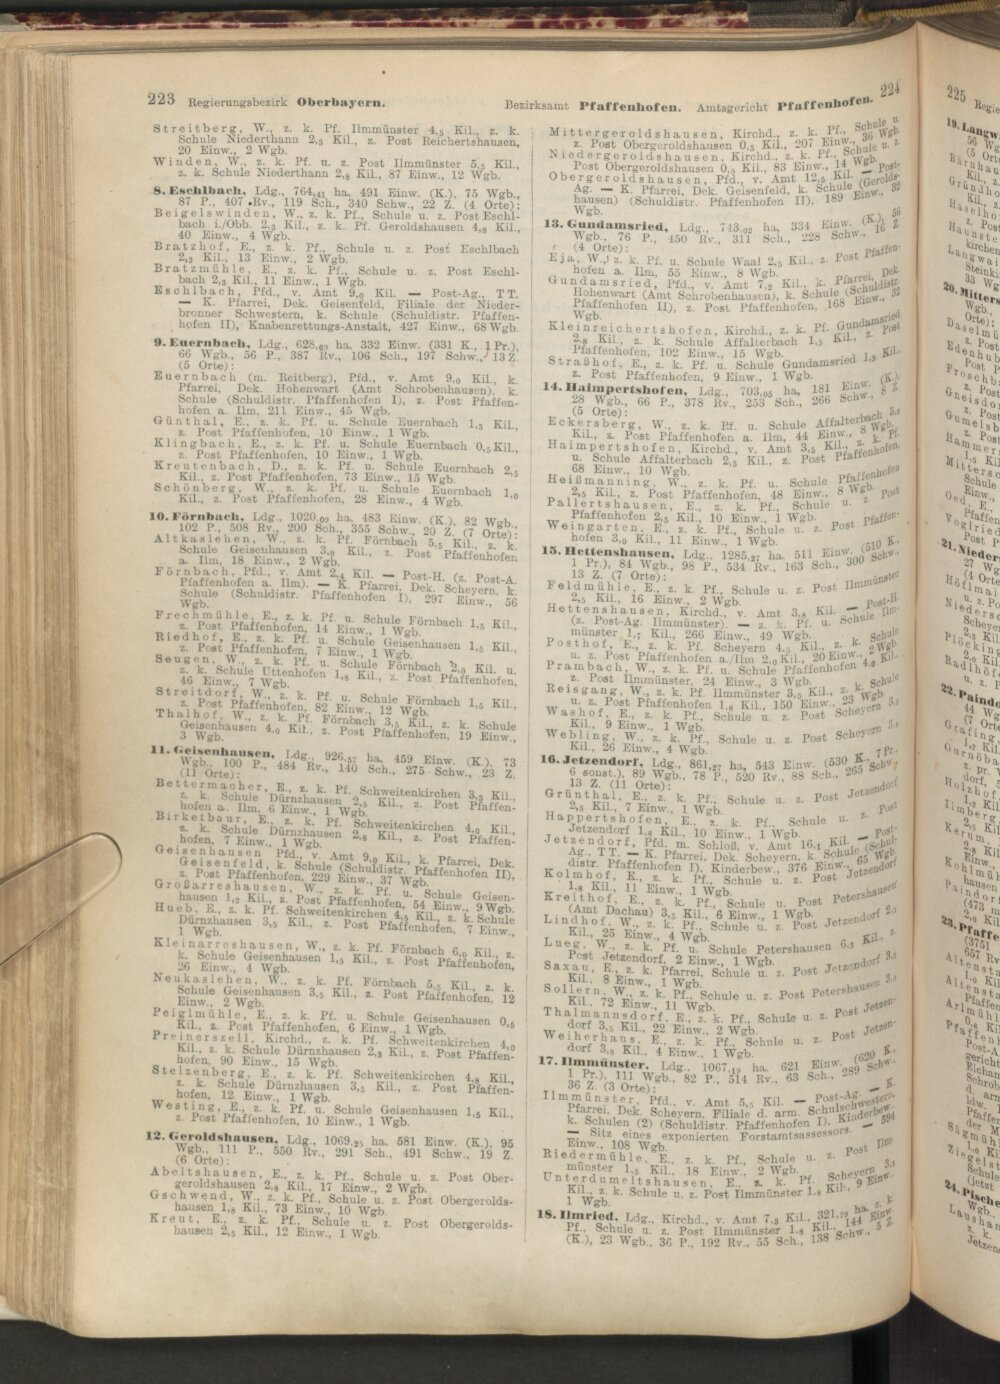 223 Regierungsbezirk Oberbayern.
Bezirksamt Pfaffenhofen. Amtsgericht Pfaffenhofen. 224
Streitberg, W., z. k. Pf. Ilmmünster 4,5 Kil., z. k.
Schule Niederthann 2,3 Kil., z. Post Reichertshausen,
20 Einw., 2 Wgb.
Winden, W., z. k. Pf. u. z. Post Ilmmünster 5,5 Kil.,
z. k. Schule Niederthann 2,8 Kil., 87 Einw., 12 Wgb.
8. Eschlbach, Ldg., 764,41 ha, 491 Einw. (K.), 75 Wgb.,
87 P., 407 Rv., 119 Sch., 340 Schw., 22 Z. (4 Orte):
Beigelswinden, W., z. k. Pf., Schule u. z. Post Eschl-
bach i./Obb. 2,3 Kil., z. k. Pf. Geroldshausen 4,8 Kil.,
40 Einw., 4 Wgb.
Bratzhof, E., z. k. Pf., Schule u. z. Post Eschlbach
2,3 Kil., 13 Einw., 2 Wgb.
Bratzmühle, E., z. k. Pf., Schule u. z. Post Eschl-
bach 2,3 Kil., 11 Einw., 1 Wgb.
Eschlbach, Pfd., v. Amt 9,0 Kil. — Post-Ag., TT.
— K. Pfarrei, Dek. Geisenfeld, Filiale der Nieder-
bronner Schwestern, k. Schule (Schuldistr. Pfaffen-
hofen II), Knabenrettungs-Anstalt, 427 Einw., 68 Wgb.
9. Euernbach, Ldg., 628,69 ha, 332 Einw. (331 K., 1 Pr.),
66 Wgb., 56 P., 387 Rv., 106 Sch., 197 Schw., 13 Z.
(5 Orte):
Euernbach (m. Reitberg), Pfd., v. Amt 9,0 Kil., k.
Pfarrei, Dek. Hohenwart (Amt Schrobenhausen), k.
Schule (Schuldistr. Pfaffenhofen I), z. Post Pfaffen-
hofen a. Ilm, 211 Einw., 45 Wgb.
Günthal, E., z. k. Pf. u. Schule Euernbach 1,8 Kil.,
z. Post Pfaffenhofen, 10 Einw., 1 Wgb.
Klingbach, E., z. k. Pf. u. Schule Euernbach 0,5 Kil.,
z. Post Pfaffenhofen, 10 Einw., 1 Wgb.
Kreutenbach, D., z. k. Pf. u. Schule Euernbach 2,5
Kil., z. Post Pfaffenhofen, 73 Einw., 15 Wgb.
Schönberg, W., z. k. Pf. u. Schule Euernbach 1,0
Kil., z. Post Pfaffenhofen, 28 Einw., 4 Wgb.
10. Förnbach, Ldg., 1020,69 ha, 483 Einw. (K.), 82 Wgb.,
102 P., 508 Rv., 200 Sch., 355 Schw., 20 Z. (7 Orte):
Altkaslehen, W., z. k. Pf. Förnbach 5,5 Kil., z. k.
Schule Geisenhausen 3,0 Kil., z. Post Pfaffenhofen
a. Ilm, 18 Einw., 2 Wgb.
Förnbach, Pfd., v. Amt 2,4 Kil. — Post-H. (z. Post-A.
Pfaffenhofen a. Ilm). — K. Pfarrei, Dek. Scheyern, k.
Schule (Schuldistr. Pfaffenhofen I), 297 Einw., 56
Wgb.
Frechmühle, E., z. k. Pf. u. Schule Förnbach 1,5 Kil.,
z. Post Pfaffenhofen, 14 Einw., 1 Wgb.
Riedhof, E., z. k. Pf. u. Schule Geisenhausen 1,5 Kil.,
z. Post Pfaffenhofen, 7 Einw., 1 Wgb.
Seugen, W., z. k. Pf. u. Schule Förnbach 2,0 Kil. u.
z. k. Schule Uttenhofen 1,8 Kil., z. Post Pfaffenhofen,
46 Einw., 7 Wgb.
Streitdorf, W., z. k. Pf. u. Schule Förnbach 1,5 Kil.,
z. Post Pfaffenhofen, 82 Einw., 12 Wgb.
Thalhof, W., z. k. Pf. Förnbach 3,5 Kil., z. k. Schule
Geisenhausen 4,0 Kil., z. Post Pfaffenhofen, 19 Einw.,
3 Wgb.
11. Geisenhausen, Ldg., 926,57 ha, 459 Einw. (K.), 73
Wgb., 100 P., 484 Rv., 140 Sch., 275 Schw., 23 Z.
(11 Orte):
Bettermacher, E., z. k. Pf. Schweitenkirchen 3,3 Kil.,
z. k. Schule Dürnzhausen 2,5 Kil., z. Post Pfaffen-
hofen a. Ilm, 6 Einw., 1 Wgb.
Birketbaur, E., z. k. Pf. Schweitenkirchen 4,0 Kil.,
z. k. Schule Dürnzhausen 2,8 Kil., z. Post Pfaffen-
hofen, 7 Einw., 1 Wgb.
Geisenhausen Pfd., v. Amt 9,0 Kil., k. Pfarrei, Dek.
Geisenfeld, k. Schule (Schuldistr. Pfaffenhofen II),
z. Post Pfaffenhofen, 229 Einw., 37 Wgb.
Großarreshausen, W., z. k. Pf. u. Schule Geisen-
hausen 1,2 Kil., z. Post Pfaffenhofen, 54 Einw., 9 Wgb.
Hueb, E., z. k. Pf. Schweitenkirchen 4,5 Kil., z. k. Schule
Dürnzhausen 3,5 Kil., z. Post Pfaffenhofen, 7 Einw.,
1 Wgb.
Kleinarreshausen, W., z. k. Pf. Förnbach 6,0 Kil., z.
k. Schule Geisenhausen 1,5 Kil., z. Post Pfaffenhofen,
26 Einw., 4 Wgb.
Neukaslehen, W., z. k. Pf. Förnbach 5,5 Kil., z. k.
Schule Geisenhausen 3,5 Kil., z. Post Pfaffenhofen, 12
Einw., 2 Wgb.
Peiglmühle, E., z. k. Pf. u. Schule Geisenhausen 0,5
Kil., z. Post Pfaffenhofen, 6 Einw., 1 Wgb.
Preinerszell, Kirchd., z. k. Pf. Schweitenkirchen 4,0
Kil., z. k. Schule Dürnzhausen 2,3 Kil., z. Post Pfaffen-
hofen, 90 Einw., 15 Wgb.
Stelzenberg, E., z. k. Pf. Schweitenkirchen 4,8 Kil.,
z. k. Schule Dürnzhausen 3,5 Kil., z. Post Pfaffen-
hofen, 12 Einw., 1 Wgb.
Westing, E., z. k. Pf. u. Schule Geisenhausen 1,5 Kil.,
z. Post Pfaffenhofen, 10 Einw., 1 Wgb.
12. Geroldshausen, Ldg., 1069,25 ha, 581 Einw. (K.), 95
Wgb., 111 P., 550 Rv., 291 Sch., 491 Schw., 19 Z.
(6 Orte):
Abeltshausen, E., z. k. Pf., Schule u. z. Post Ober-
geroldshausen 2,8 Kil., 17 Einw., 2 Wgb.
Gschwend, W., z. k. Pf., Schule u. z. Post Obergerolds-
hausen 1,8 Kil., 73 Einw., 10 Wgb.
Kreut, E., z. k. Pf., Schule u. z. Post Obergerolds-
hausen 2,5 Kil., 12 Einw., 1 Wgb.
Mittergeroldshausen, Kirchd., z. k. Pf., Schule u.
z. Post Obergeroldshausen 0,5 Kil., 207 Einw., 36 Wgb.
Niedergeroldshausen, Kirchd., z. k. Pf., Schule u. z.
Post Obergeroldshausen 0,5 Kil., 83 Einw., 14 Wgb.
Obergeroldshausen, Pfd., v. Amt 12,5 Kil. — Post-
Ag. — K. Pfarrei, Dek. Geisenfeld, k. Schule (Gerolds-
hausen) (Schuldistr. Pfaffenhofen II), 189 Einw., 32
Wgb.
13. Gundamsried, Ldg., 743,02 ha, 334 Einw. (K.), 56
Wgb., 76 P., 450 Rv., 311 Sch., 228 Schw., 16 Z.
(4 Orte):
Eja, W., z. k. Pf. u. Schule Waal 2,5 Kil., z. Post Pfaffen-
hofen a. Ilm, 55 Einw., 8 Wgb.
Gundamsried, Pfd., v. Amt 7,2 Kil., k. Pfarrei, Dek.
Hohenwart (Amt Schrobenhausen), k. Schule (Schuldistr.
Pfaffenhofen II), z. Post Pfaffenhofen, 168 Einw., 32
Wgb.
Kleinreichertshofen, Kirchd., z. k. Pf. Gundamsried
2,8 Kil., z. k. Schule Affalterbach 1,5 Kil., z. Post
Pfaffenhofen, 102 Einw., 15 Wgb.
Straßhof, E., z. k. Pf. u. Schule Gundamsried 1,8 Kil.,
z. Post Pfaffenhofen, 9 Einw., 1 Wgb.
14. Haimpertshofen, Ldg., 703,05 ha, 181 Einw. (K.),
28 Wgb., 66 P., 378 Rv., 253 Sch., 266 Schw., 8 Z.
(5 Orte):
Eckersberg, W., z. k. Pf. u. Schule Affalterbach 3,0
Kil., z. Post Pfaffenhofen a. Ilm, 44 Einw., 8 Wgb.
Haimpertshofen, Kirchd., v. Amt 3,5 Kil., z. k. Pf.
u. Schule Affalterbach 2,5 Kil., z. Post Pfaffenhofen,
68 Einw., 10 Wgb.
Heißmanning, W., z. k. Pf. u. Schule Pfaffenhofen
2,5 Kil., z. Post Pfaffenhofen, 48 Einw., 8 Wgb.
Pallertshausen, E., z. k. Pf., Schule u. z. Post
Pfaffenhofen 2,5 Kil., 10 Einw., 1 Wgb.
Weingarten, E., z. k. Pf., Schule u. z. Post Pfaffen-
hofen 3,0 Kil., 11 Einw., 1 Wgb.
15. Hettenshausen, Ldg., 1285,27 ha, 511 Einw. (510 K.,
1 Pr.), 84 Wgb., 98 P., 534 Rv., 163 Sch., 300 Schw.,
13 Z. (7 Orte):
Feldmühle, E., z. k. Pf., Schule u. z. Post Ilmmünster
2,5 Kil., 16 Einw., 2 Wgb.
Hettenshausen, Kirchd., v. Amt 3,8 Kil. — Post-H.
(z. Post-Ag. Ilmmünster). — z. k. Pf. u. Schule Ilm-
münster 1,7 Kil., 266 Einw., 49 Wgb.
Posthof, E., z. k. Pf. Scheyern 4,5 Kil., z. k. Schule
u. z. Post Pfaffenhofen a./Ilm 2,0 Kil., 20 Einw., 2 Wgb.
Prambach, W., z. k. Pf. u. Schule Pfaffenhofen 4,0 Kil.,
z. Post Ilmmünster, 24 Einw., 3 Wgb.
Reisgang, W., z. k. Pf. Ilmmünster 3,5 Kil., z. k. Schule
u. z. Post Pfaffenhofen 1,8 Kil., 150 Einw., 23 Wgb.
Washof, E., z. k. Pf., Schule u. z. Post Scheyern 3,5
Kil., 9 Einw., 1 Wgb.
Webling, W., z. k. Pf., Schule u. z. Post Scheyern 3,5
Kil., 26 Einw., 4 Wgb.
16. Jetzendorf, Ldg., 861,27 ha, 543 Einw. (530 K., 7 Pr.,
6 sonst.), 89 Wgb., 78 P., 520 Rv., 88 Sch., 265 Schw.,
13 Z. (11 Orte):
Grünthal, E., z. k. Pf., Schule u. z. Post Jetzendorf
2,3 Kil., 7 Einw., 1 Wgb.
Happertshofen, E., z. k. Pf., Schule u. z. Post
Jetzendorf 1,8 Kil., 10 Einw., 1 Wgb.
Jetzendorf, Pfd. m. Schloß, v. Amt 16,1 Kil. — Post-
Ag., TT. — K. Pfarrei, Dek. Scheyern, k. Schule (Schul-
distr. Pfaffenhofen I), Kinderbew., 376 Einw., 65 Wgb.
Kolmhof, E., z. k. Pf., Schule u. z. Post Jetzendorf
1,8 Kil., 11 Einw., 1 Wgb.
Kreithof, E., z. k. Pf., Schule u. Post Petershausen
(Amt Dachau) 3,5 Kil., 6 Einw., 1 Wgb.
Lindhof, W., z. k. Pf., Schule u. z. Post Jetzendorf 2,0
Kil., 25 Einw., 4 Wgb.
Lueg, W., z. k. Pf. u. Schule Petershausen 6,3 Kil., z.
Post Jetzendorf, 2 Einw., 1 Wgb.
Saxau, E., z. k. Pfarrei, Schule u. z. Post Jetzendorf 3,0
Kil., 8 Einw., 1 Wgb.
Sollern, W., z. k. Pf., Schule u. z. Post Petershausen 3,0
Kil., 72 Einw., 11 Wgb.
Thalmannsdorf, E., z. k. Pf., Schule u. z. Post Jetzen-
dorf 3,5 Kil., 22 Einw., 2 Wgb.
Weiherhaus, E., z. k. Pf., Schule u. z. Post Jetzen-
dorf 3,8 Kil., 4 Einw., 1 Wgb.
17. Ilmmünster, Ldg., 1067,19 ha, 621 Einw. (620 K.,
1 Pr.), 111 Wgb., 82 P., 514 Rv., 63 Sch., 289 Schw.,
36 Z. (3 Orte):
Ilmmünster, Pfd., v. Amt 5,5 Kil. — Post-Ag. — K.
Pfarrei, Dek. Scheyern, Filiale d. arm. Schulschwestern,
k. Schulen (2) (Schuldistr. Pfaffenhofen I). Kinderbew.
— Sitz eines exponierten Forstamtsassessors. — 594
Einw., 108 Wgb.
Riedermühle, E., z. k. Pf., Schule u. z. Post Ilm-
münster 1,5 Kil., 18 Einw., 2 Wgb.
Unterdumeltshausen, E., z. k. Pf. Scheyern 3,5
Kil., z. k. Schule u. z. Post Ilmmünster 1,8 Kil., 9 Einw.,
1 Wgb.
18. Ilmried, Ldg., Kirchd., v. Amt 7,3 Kil., 321,70 ha, z. k.
Pf., Schule u. z. Post Ilmmünster 1,8 Kil., 144 Einw.
(K.), 23 Wgb., 36 P., 192 Rv., 55 Sch., 138 Schw., 5 Z.
225